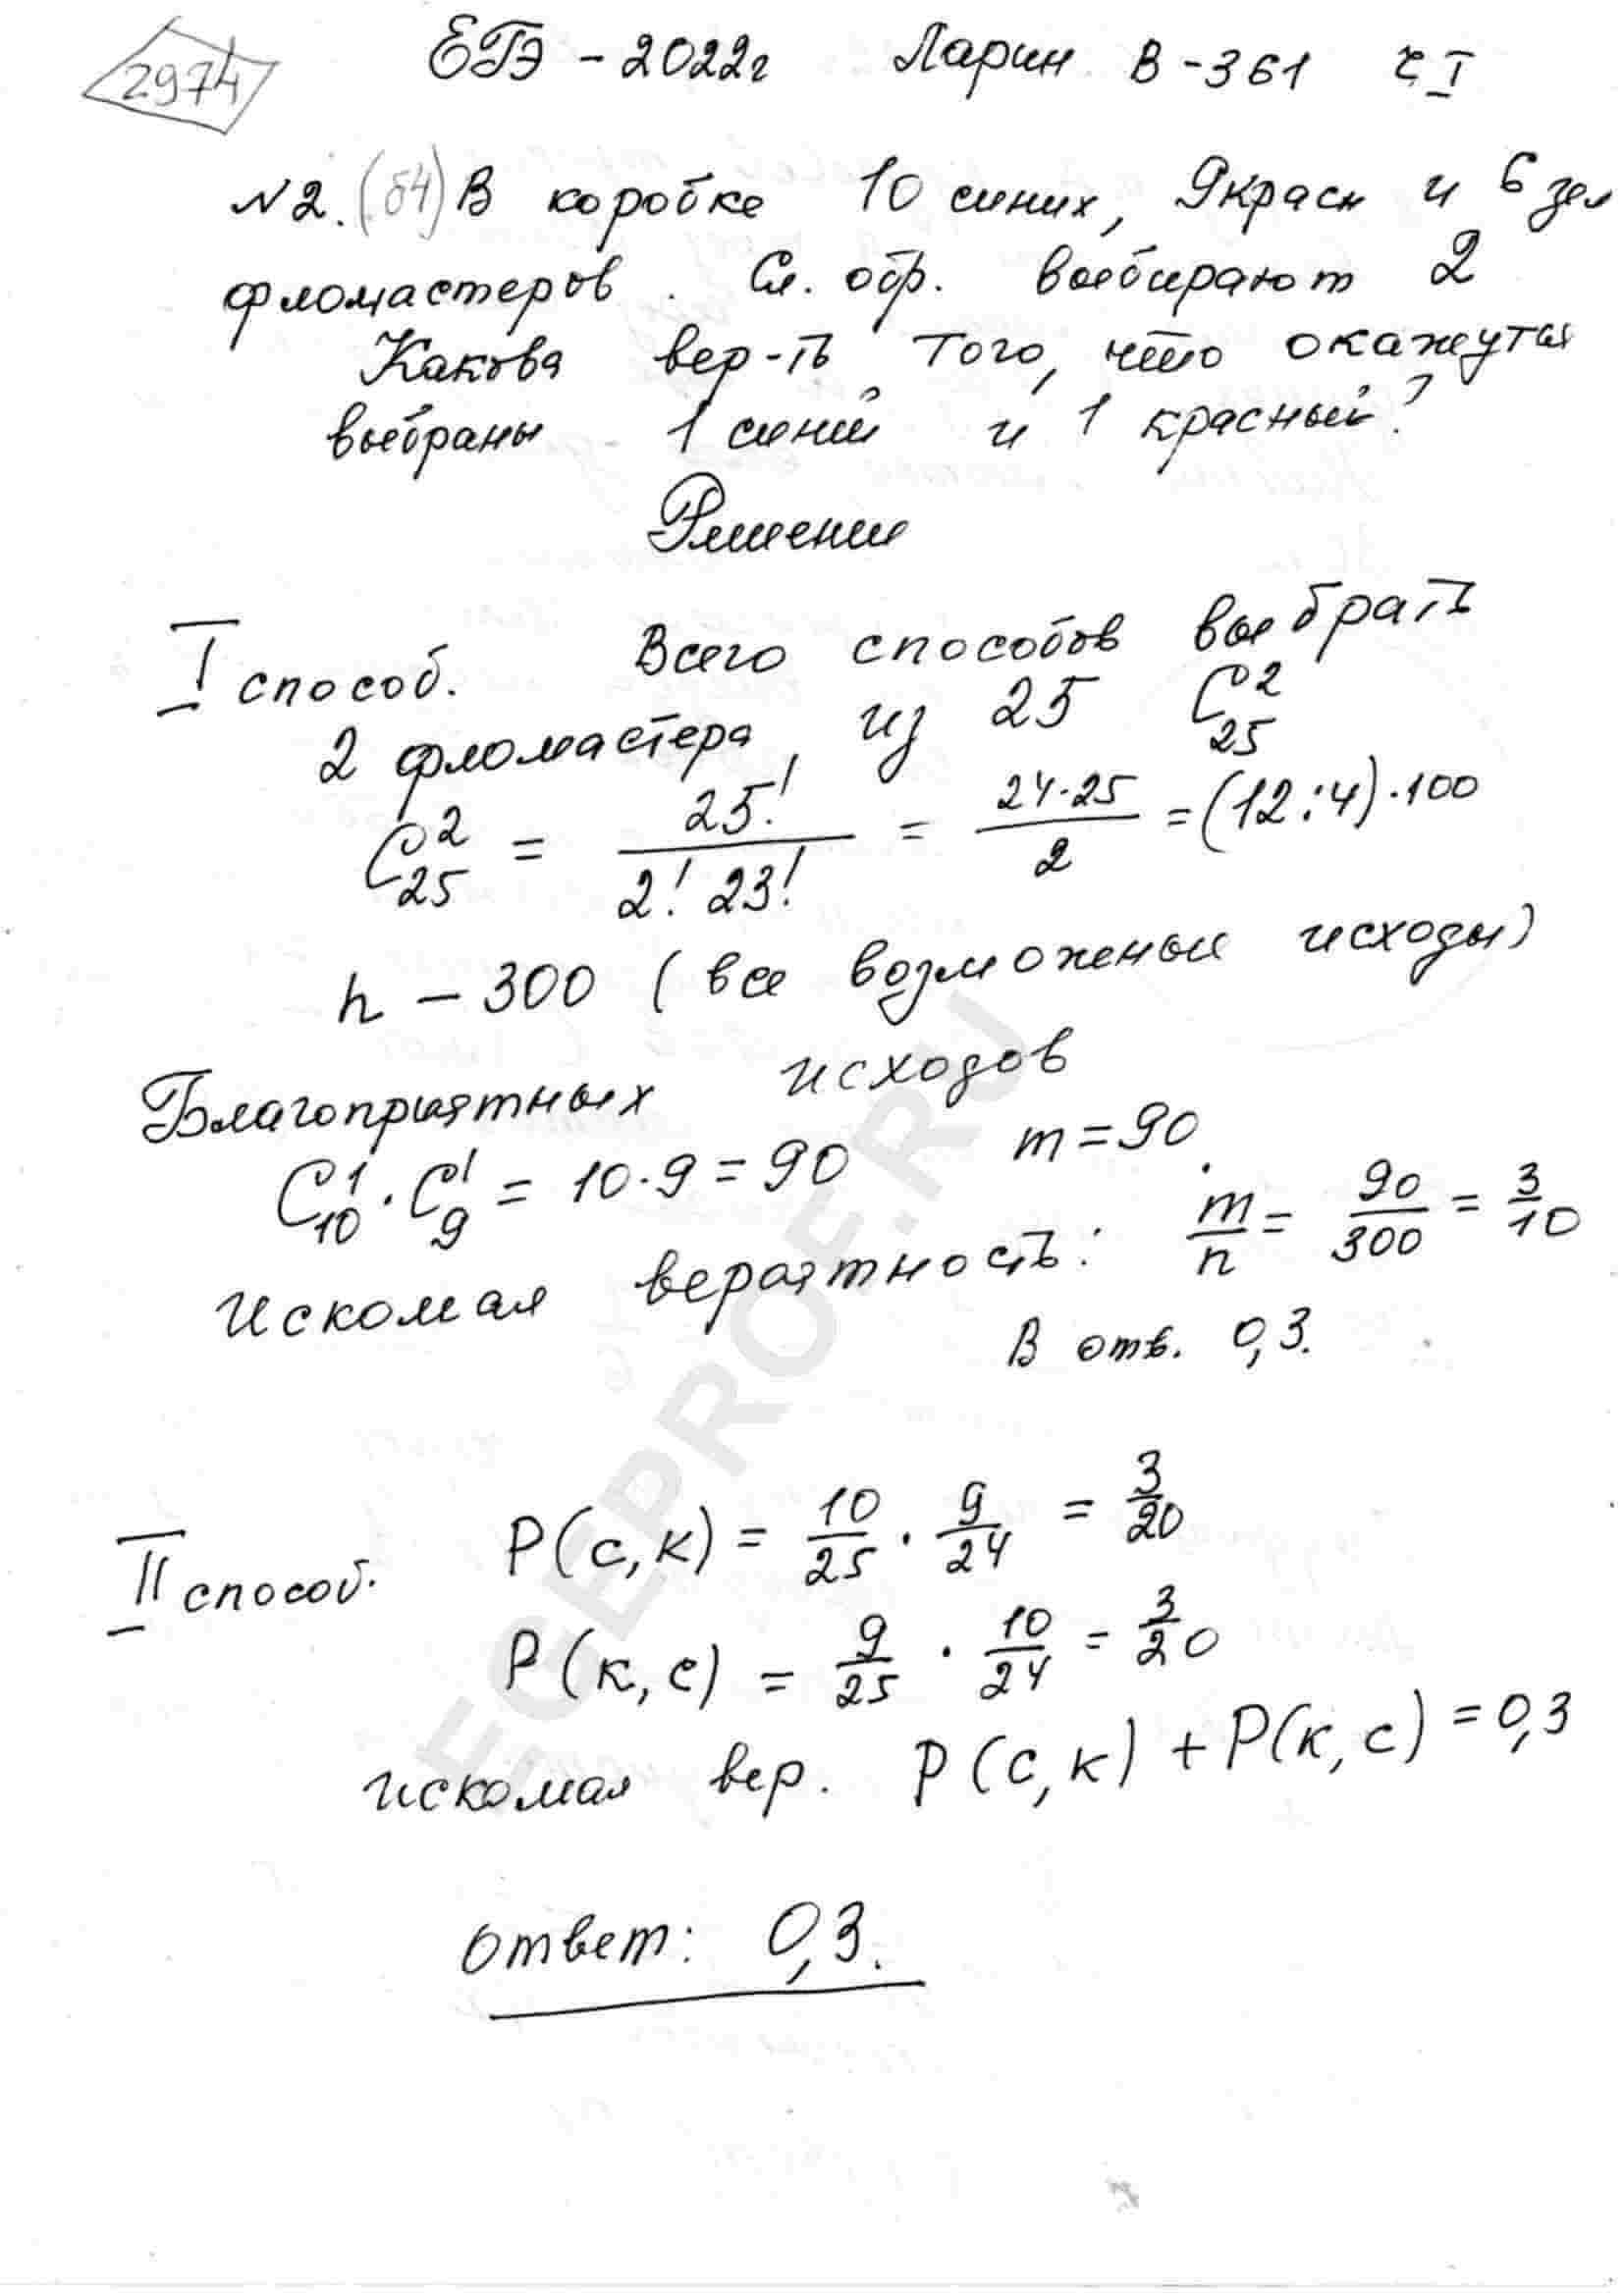 2974
ЕГЭ - 2022г Ларин В-361 ч I
№2. (б4) В коробке 10 синих, 9 красн и 6 зел
фломастеров. Сл. обр. выбирают 2
Какова вер-ть того, что окажутся
выбраны 1 синий и 1 красный?
Решение
I способ. Всего способов выбрать
2 фломастера из 25 C²₂₅
C²₂₅ = 25! / (2! 23!) = 24·25 / 2 = (12:4)·100
n - 300 (все возможные исходы)
Благоприятных исходов
C¹₁₀ · C¹₉ = 10·9 = 90 m = 90.
Искомая вероятность: m/n = 90/300 = 3/10
В отв. 0,3.
II способ. P(с,к) = 10/25 · 9/24 = 3/20
P(к,с) = 9/25 · 10/24 = 3/20
искомая вер. P(с,к) + P(к,с) = 0,3
Ответ: 0,3.
EGEPROF.RU